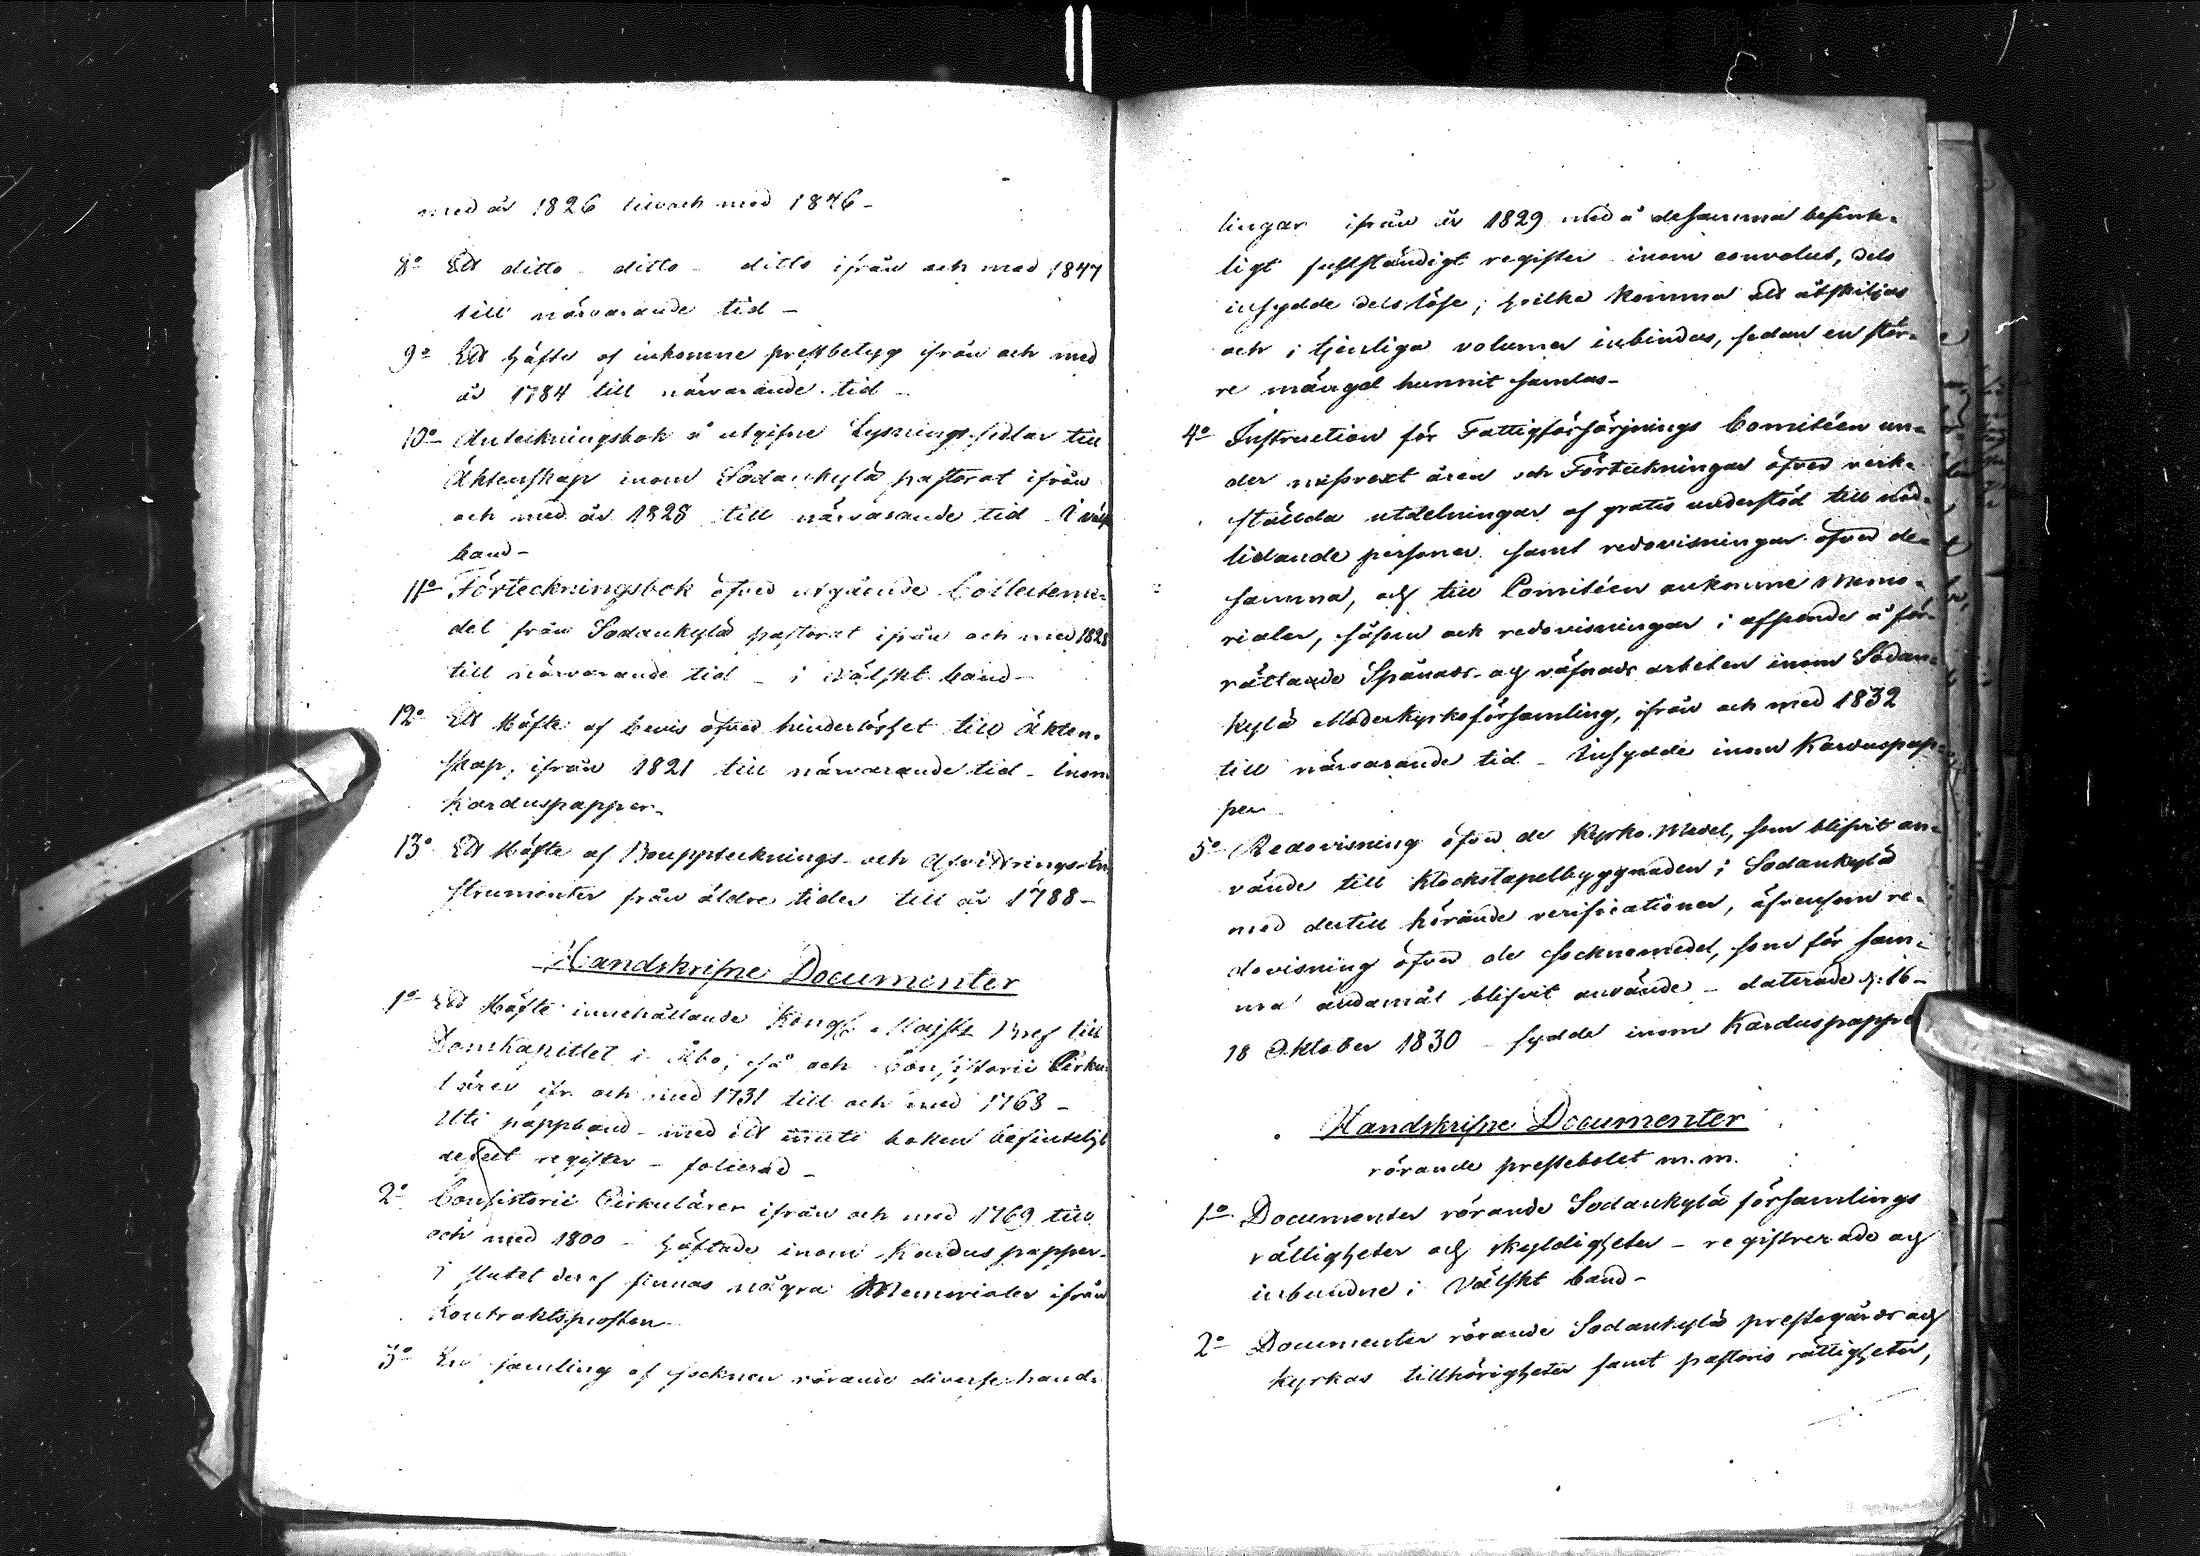 med år 1826 till och med 1846 -
8o Ett ditto - ditto - ditto ifrån och med 1847
till närvarande tid -
9o Ett häfte af inkomne prestbetyg ifrån och med
år 1784 till närvarande tid -
10o Anteckningsbok å utgifne Lysnings-sedlar till
Äktenskap inom Sodankylä pastorat ifrån
och med år 1828 till närvarande tid - I
band -
11o Förteckningsbok öfver utgående Collecteme-
del från Sodankylä pastorat ifrån och med 1828
till närvarande tid - i wälskt band -
12o Ett Häfte af bevis öfver hinderlöshet till Äkten-
skap, ifrån 1821 till närvarande tid - Inom
Karduspapper -
13o Ett Häfte af Bouppteknings- och Afvittrings-In
strumenter från äldre tider till år 1788 -
Handskrifne Documenter
1o Ett Häfte innehållande Kongl. Majsts Bref till
Domkapitlet i Åbo, så och Consistorii Cirku-
lärer ifr. och med 1731 till och med 1768 -
Uti pappband - med ett inuti boken befinteligt
defect register - folierad -
2o Consistorii Cirkulärer ifrån och med 1769 till
och med 1800 - häftade inom Kardus papper -
I slutet deraf finnas några Memorialer ifrån
Kontraktsprosten -
3o En samling af socknen rörande diverse hand-
lingar ifrån år 1829 med å desamma befint-
ligt fullständigt register inom convolut, dels
insydde dels löse, hvilka komma att åtskiljas
och i tjenliga volumer inbindas, sedan en stör-
re mängd hunnit samlas -
4o Instruction för Fattigförsörjnings Comitéen un-
der missvext åren och Förteckningar öfver verk-
stälda utdelningar af gratis understöd till nöd-
lidande personer samt redovisningar öfver de-
samma, och till Comitéen ankomne Memo-
rialer, såsom ock redovisningar i afseende å för-
rättande Spånads- och väfnads arbeten inom Sodan-
kylä Moderkyrkoförsamling, ifrån och med 1832
till närvarande tid - Insydde inom Karduspap-
per
5o Redovisning öfver de Kyrko-Medel, som blifvit an-
vände till klockstapelbyggnaden i Sodankylä
med dertill hörande verificationer, äfvensom re-
dovisning öfver de socknemedel, som för sam-
ma ändamål blifvit använde - daterade d. 16 -
18 Oktober 1830 - sydde inom Karduspapper
Handskrifne Documenter
rörande prestebolet m.m.
1o Documenter rörande Sodankylä församlings
rättigheter och skyldigheter - registrerade och
inbundne i Välskt band -
2o Documenter rörande Sodankylä prestegårds och
kyrkas tillhörigheter samt pastoris rättigheter,